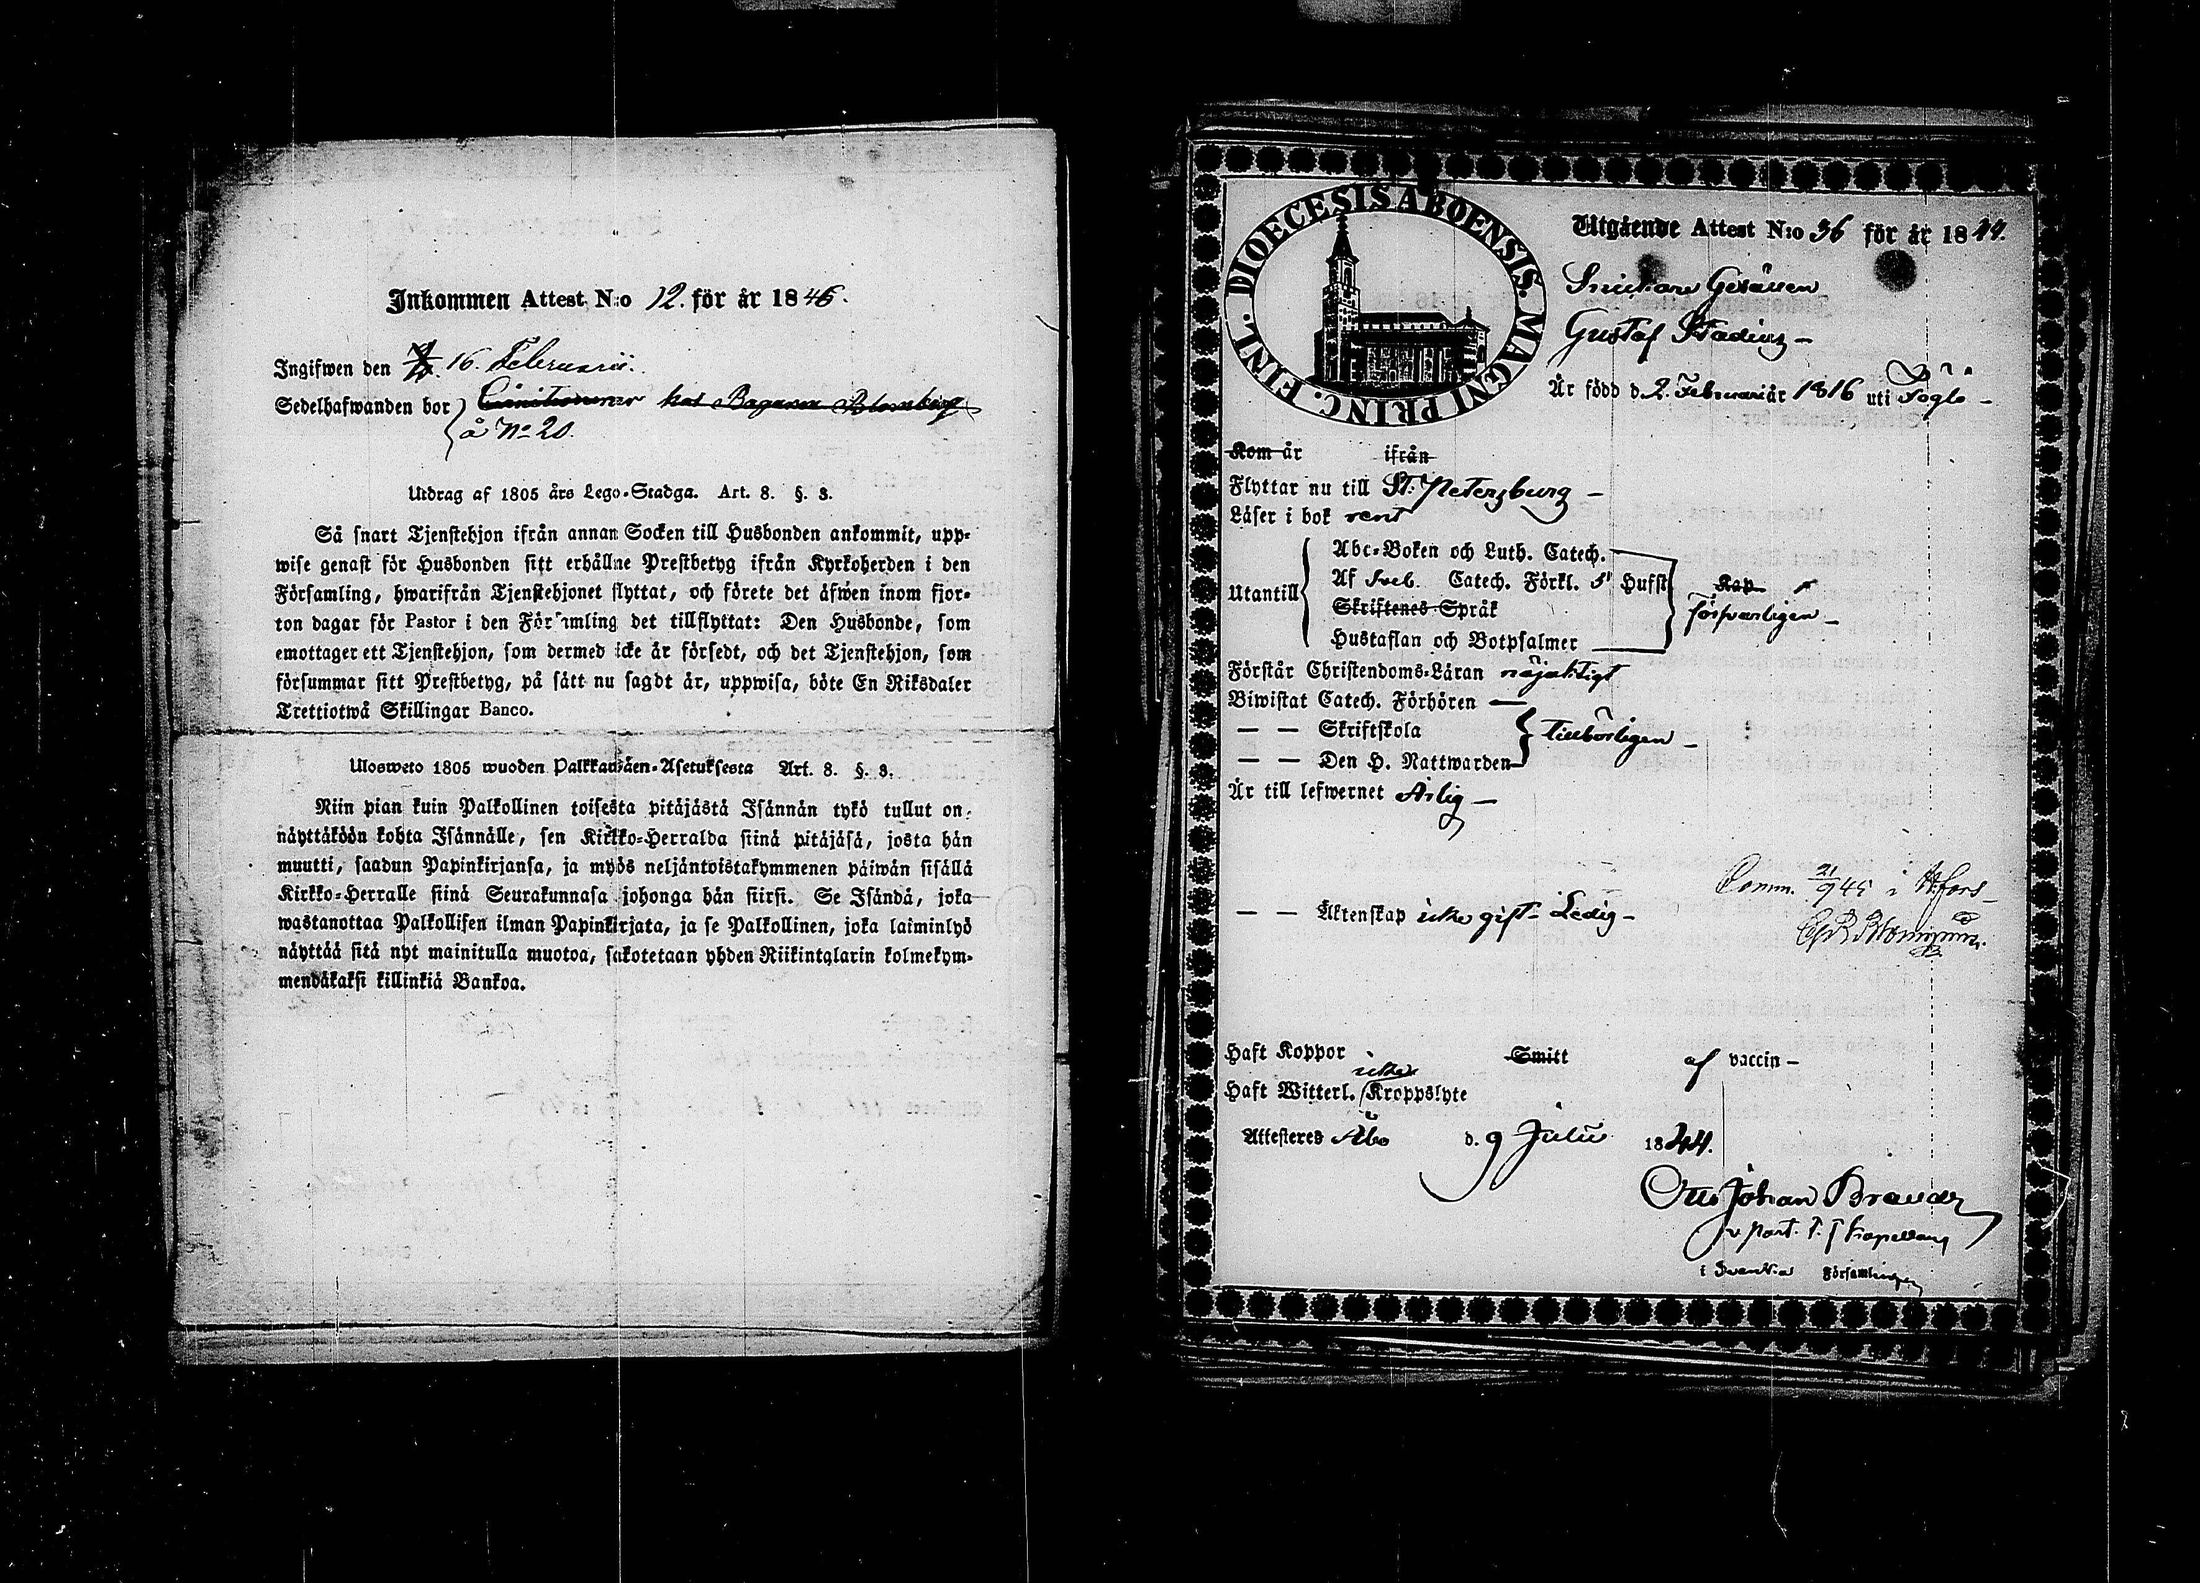 Inkommen Attest N:o 12. för år 1846.
Ingifwen den 16. Februarii.
Sedelhafwanden bor Conditionerar hos Bagaren Blomberg
å No 20.
Utdrag af 1805 års Lego-Stadga. Art. 8. §. 3.
Så snart Tjenstehjon ifrån annan Socken till Husbonden ankommit, upp-
wise genast för Husbonden sitt erhållne Prestbetyg ifrån Kyrkoherden i den
Församling, hwarifrån Tjenstehjonet flyttat, och förete det äfwen inom fjor-
ton dagar för Pastor i den Församling det tillflyttat: Den Husbonde, som
emottager ett Tjenstehjon, som dermed icke är försedt, och det Tjenstehjon, som
försummar sitt Prestbetyg, på sätt nu sagdt är, uppwisa, böte En Riksdaler
Trettiotwå Skillingar Banco.
Ulosweto 1805 wuoden Palkkawäen-Asetuksesta Art. 8. §. 3.
Niin pian kuin Palkollinen toisesta pitäjästä Isännän tykö tullut on,
näyttäköön kohta Isännälle, sen Kirkko-Herralda siinä pitäjäsä, josta hän
muutti, saadun Papinkirjansa, ja myös neljäntoistakymmenen päiwän sisällä
Kirkko-Herralle siinä Seurakunnasa johonga hän siirsi. Se Isändä, joka
wastanottaa Palkollisen ilman Papinkirjata, ja se Palkollinen, joka laiminlyö
näyttää sitä nyt mainitulla muotoa, sakotetaan yhden Riikintalarin kolmekym-
mendäkaksi killinkiä Bankoa.
DIOECESIS ABOENSIS. MAGNI PRINC. FINL.
Utgående Attest N:o 36 för år 1844.
Snickare Gesällen
Gustaf Stadius
Är född d. 2. Februarii år 1816 uti Föglö
Kom år ifrån
Flyttar nu till St. Petersburg
Läser i bok rent
Utantill
Abc-Boken och Luth. Catech.
Af Sveb. Catech. Förkl. 5 Hufst.
Skriftenes Språk
Hustaflan och Botpsalmer
Kap
försvarligen
Förstår Christendoms-Läran nöjaktigt
Biwistat Catech. Förhören
— — Skriftskola
— — Den H. Nattwarden
tillbörligen
Är till lefwernet Ärlig
Comm. 21/9 45 i H.fors
— — Äktenskap icke gift - Ledig
Haft Koppor Smitt af vaccin
Haft Witterl. icke Kroppslyte
Attesteres Åbo d. 9 Julii 1844.
Otto Johan
i Svenska Församlingen